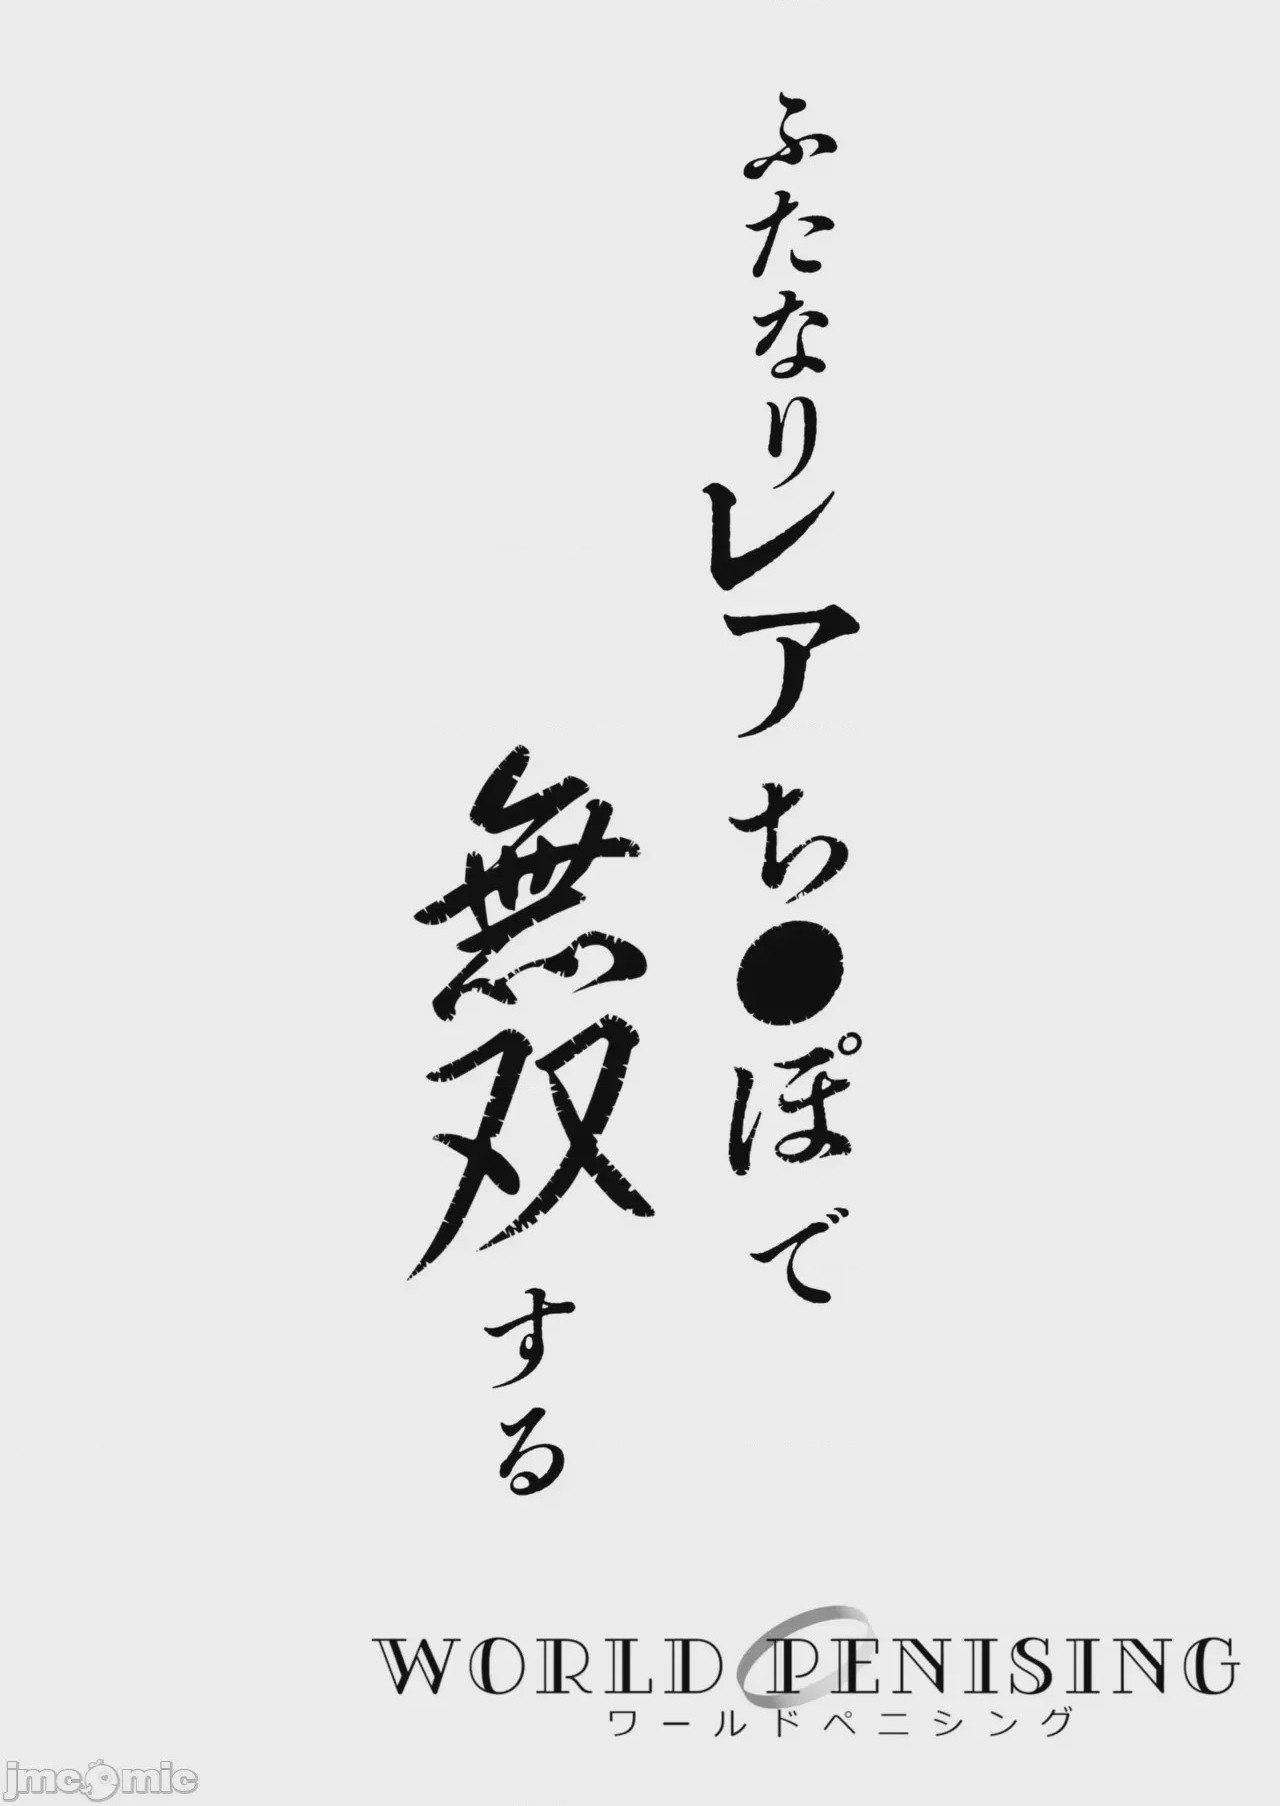 ふたなりレアち●ぽで
無双する
WORLD PENISING
ワールドペニシング
jmcomic